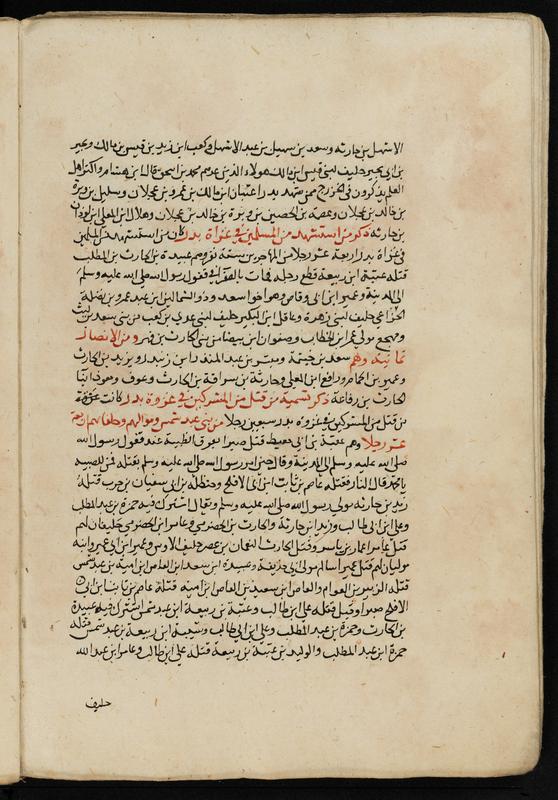 الاشهل بن حارثه وسعد بن سهيل بن عبد الاشهل وكعب ابن زيد بن قيس بن مالك وبجير
بن ابي بجير حليف لبني قيس ابن مالك هولاء الذين عدهم محمد بن اسحق قال ابن هشام واكثر اهل
العلم يذكرون في الخزرج ممن شهد بدرا عتبان ابن مالك بن عمرو بن عجلان ومليل بن وبرة
بن خالد بن عجلان وعصمة بن الحصين بن وبرة بن خالد بن عجلان وهلال ابن المعلى ابن لوذان
بن حارثه ذكر من استشهد من المسلمين في غزاة بدر كان من استشهد من المسلمين
في غزاة بدر اربعة عشر رجلا من المهاجرين ستة نفر وهم عبيدة بن الحارث بن المطلب
قتله عتبة ابن ربيعة قطع رجله فمات بالصفرا في قفول رسول الله صلى الله عليه وسلم
الى المدينة وعمير ابن ابي وقاص وهو اخو سعد وذو الشمالين ابن عبد عمرو بن نضلة
الخزاعي حليف لبني زهرة وعاقل ابن البكير حليف لبني عدي بن كعب من بني سعد بن ليث
ومهجع مولى عمر ابن الخطاب وصفوان ابن بيضا من بني الحارث بن فهر ومن الانصار
ثمانية وهم سعد بن خيثمة ومبشر بن عبد المنذر ابن زنبر ويزيد بن الحارث
وعمير بن الحمام ورافع ابن المعلى وحارثة بن سراقة بن الحارث وعوف ومعوذ ابنا
الحارث بن رفاعة ذكر تسمية من قتل من المشركين في غزوة بدر كانت
من قتل من المشركين في غزوة بدر سبعين رجلا من بني عبد شمس ومواليهم وحلفائهم اربعة
عشر رجلا وهم عقبة بن ابي معيط قتل صبرا بعرق الظبية عند قفول رسول الله
صلى الله عليه وسلم الى المدينة وقال حين امر رسول الله صلى الله عليه وسلم بقتله فمن للصبية
يا محمد قال النار فقتله عاصم بن ثابت ابن ابي الاقلح وحنظلة بن ابي سفيان بن حرب قتله
زيد بن حارثه مولى رسول الله صلى الله عليه وسلم ويقال اشترك فيه حمزة بن عبد المطلب
وعلي ابن ابي طالب وزيد ابن حارثة والحارث بن الحضرمي وعامر ابن الحضرمي حليفان لهم
قتل عامرا عمار بن ياسر وقتل الحارث النعمان بن عصر حليف الاوس وعمير ابن ابي عمير وابنه
موليان لهم قتل عميرا سالم مولى ابي حذيفة وعبيدة ابن سعيد ابن العاص ابن امية بن عبد شمس
قتله الزبير بن العوام والعاص ابن سعيد بن العاص ابن امية قتله عاصم بن ثابت ابن ابي
الاقلح صبرا وقيل قتله علي ابن ابي طالب وعتبة بن ربيعة ابن عبد شمس اشترك فيه عبيدة
بن الحارث وحمزة بن عبد المطلب وعلي ابن ابي طالب وشيبة ابن ربيعة بن عبد شمس قتله
حمزة ابن عبد المطلب والوليد بن عتبة بن ربيعة قتله علي ابن طالب وعامر ابن عبد الله
حليف